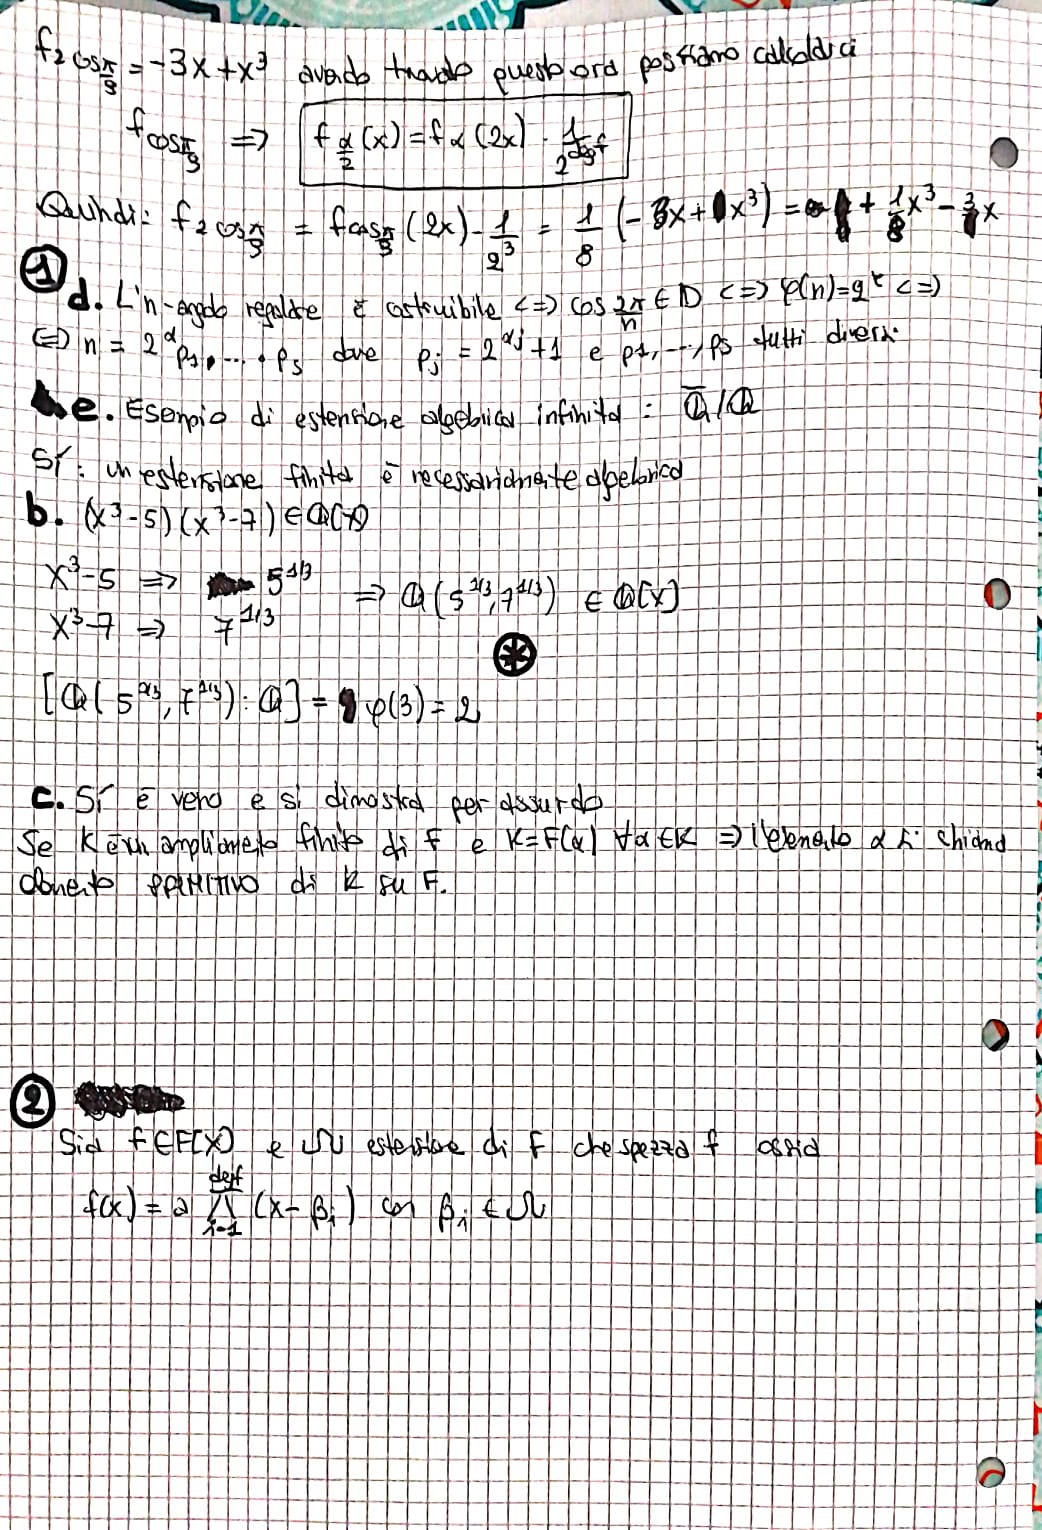 f₂cos π/9 = -3x + x³ avendo trovato questo ora possiamo calcolarci
f cos π/9 ⇒ f α/2 (x) = f α (2x) · 1/2^degf
Quindi: f₂ cos π/9 = f cos π/9 (2x) - 1/2³ = 1/8 (-3x + x³) = + 1/8 x³ - 3/ x
① d. L'n-angolo regolare è costruibile <=> cos 2π/n ∈ D <=> φ(n)=2^t <=>
<=> n = 2^α p1, ... · ps dove pj = 2^αj + 1 e p1, ..., ps tutti diversi.
e. Esempio di estensione algebrica infinita : Q̅/Q
Sí: un estensione finita è necessariamente algebrica
b. (x³-5)(x³-7) ∈ Q(x)
x³-5 => 5^1/3
x³-7 => 7^1/3 => Q(5^1/3, 7^1/3) ∈ Q[x]
⊛
[Q(5^1/3, 7^1/3) : Q] = φ(3) = 2
c. Sí è vero e si dimostra per assurdo
Se K è un ampliamento finito di F e K=F(α) ∀α∈K => l'elemento α si chiama
elemento PRIMITIVO di K su F.
②
Sia f∈F[x] e Ω estensione di F che spezza f ossia
f(x) = a ∏ i=1 degf (x-βi) con βi ∈ Ω